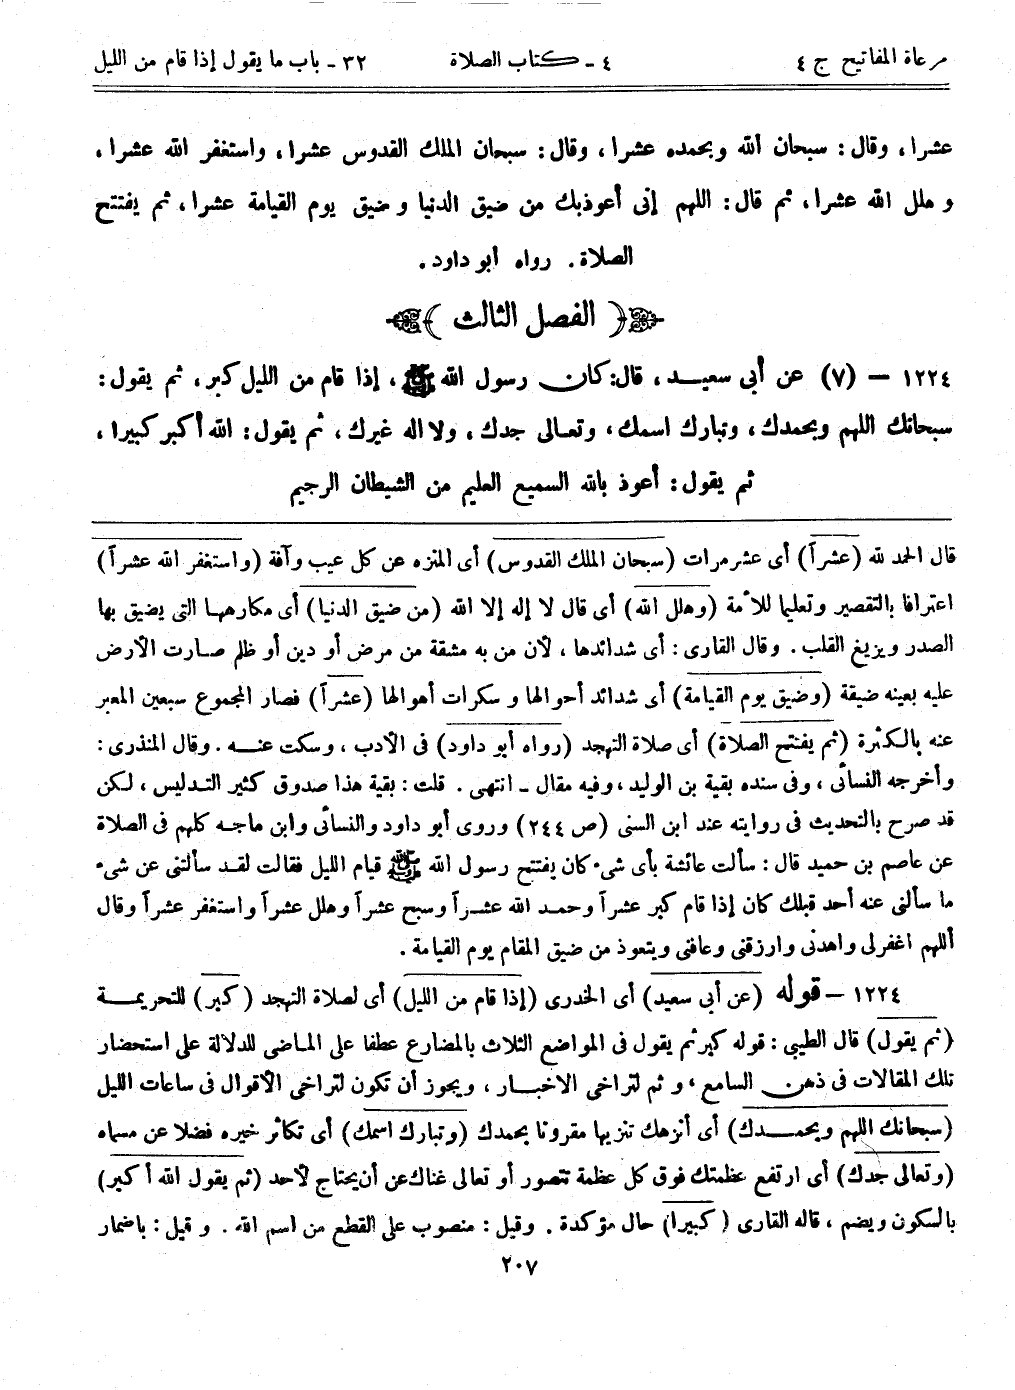 مرعاة المفاتيح ج ٤
٤ - كتاب الصلاة
٣٢ - باب ما يقول إذا قام من الليل
عشرا، وقال: سبحان الله وبحمده عشرا، وقال: سبحان الملك القدوس عشرا، واستغفر الله عشرا،
وهلل الله عشرا، ثم قال: اللهم إنى أعوذبك من ضيق الدنيا وضيق يوم القيامة عشرا، ثم يفتتح
الصلاة. رواه أبو داود.
﴿ الفصل الثالث ﴾
١٢٢٤ — (٧) عن أبي سعيد، قال: كان رسول الله ﷺ، إذا قام من الليل كبر، ثم يقول:
سبحانك اللهم وبحمدك، وتبارك اسمك، وتعالى جدك، ولا اله غيرك، ثم يقول: الله أكبر كبيرا،
ثم يقول: أعوذ بالله السميع العليم من الشيطان الرجيم
قال الحمد لله (عشراً) أى عشر مرات (سبحان الملك القدوس) أى المنزه عن كل عيب وآفة (واستغفر الله عشراً)
اعترافا بالتقصير وتعليما للأمة (وهلل الله) أى قال لا إله إلا الله (من ضيق الدنيا) أى مكارهها التى يضيق بها
الصدر ويزيغ القلب. وقال القارى: أى شدائدها، لأن من به مشقة من مرض أو دين أو ظلم صارت الأرض
عليه بعينه ضيقة (وضيق يوم القيامة) أى شدائد أحوالها وسكرات أهوالها (عشراً) فصار المجموع سبعين المعبر
عنه بالكثرة (ثم يفتتح الصلاة) أى صلاة التهجد (رواه أبو داود) فى الأدب، وسكت عنه. وقال المنذرى:
وأخرجه النسائى، وفى سنده بقية بن الوليد، وفيه مقال - انتهى. قلت: بقية هذا صدوق كثير التدليس، لكن
قد صرح بالتحديث فى روايته عند ابن السنى (ص ٢٤٤) وروى أبو داود والنسائى وابن ماجه كلهم فى الصلاة
عن عاصم بن حميد قال: سألت عائشة بأى شىء كان يفتتح رسول الله ﷺ قيام الليل فقالت لقد سألتنى عن شىء
ما سألنى عنه أحد قبلك كان إذا قام كبر عشراً وحمد الله عشراً وسبح عشراً وهلل عشراً واستغفر عشراً وقال
أللهم اغفرلى واهدنى وارزقنى وعافنى ويتعوذ من ضيق المقام يوم القيامة.
١٢٢٤ - قوله (عن أبي سعيد) أى الخدرى (إذا قام من الليل) أى لصلاة التهجد (كبر) للتحريمة
(ثم يقول) قال الطيبى: قوله كبر ثم يقول فى المواضع الثلاث بالمضارع عطفا على الماضى للدلالة على استحضار
تلك المقالات فى ذهن السامع، و ثم لتراخى الاخبار، ويجوز أن تكون لتراخى الأقوال فى ساعات الليل
(سبحانك اللهم وبحمدك) أى أنزهك تنزيها مقرونا بحمدك (وتبارك اسمك) أى تكاثر خيره فضلا عن مسماه
(وتعالى جدك) أى ارتفع عظمتك فوق كل عظمة تتصور أو تعالى غناك عن أن يحتاج لأحد (ثم يقول الله أكبر)
بالسكون ويضم، قاله القارى (كبيرا) حال مؤكدة. وقيل: منصوب على القطع من اسم الله. وقيل: باضمار
٢٠٧